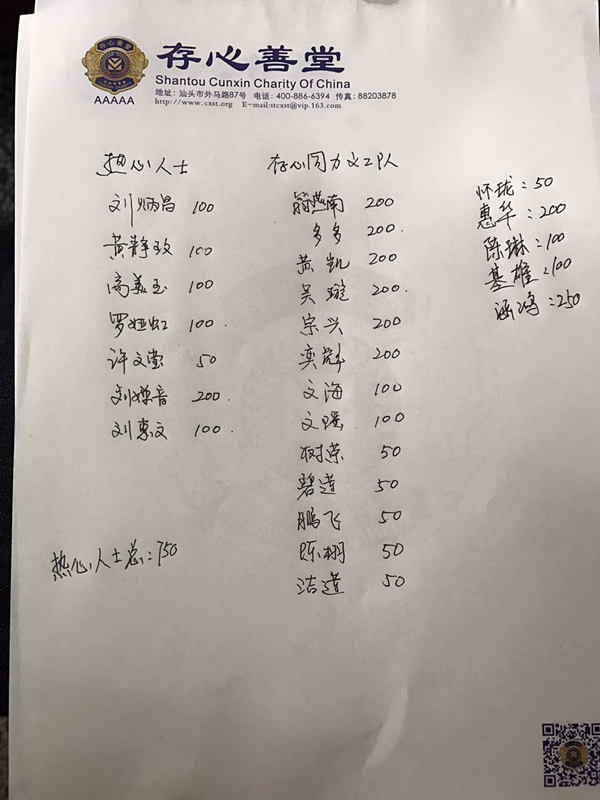 存心善堂
存心善堂
Shantou Cunxin Charity Of China
AAAAA
地址: 汕头市外马路87号 电话: 400-886-6394 传真: 88203878
http://www.cxst.org E-mail:stcxst@vip.163.com
热心人士
刘炳昌 100
黄静玫 100
高美玉 100
罗娅虹 100.
许文莹 50
刘禅音 200.
刘惠文 100.
热心人士总:750
存心同力义工队
翁燕南 200
多多 200.
黄凯 200
吴璇 200.
宗兴 200
奕彪 200
文海 100
文曙 100
树荣 50
碧莲 50
鹏飞 50
陈栩 50
洁莲 50
怀珑:50
惠华:200
陈琳:100
基雄:100
涵鸿:250